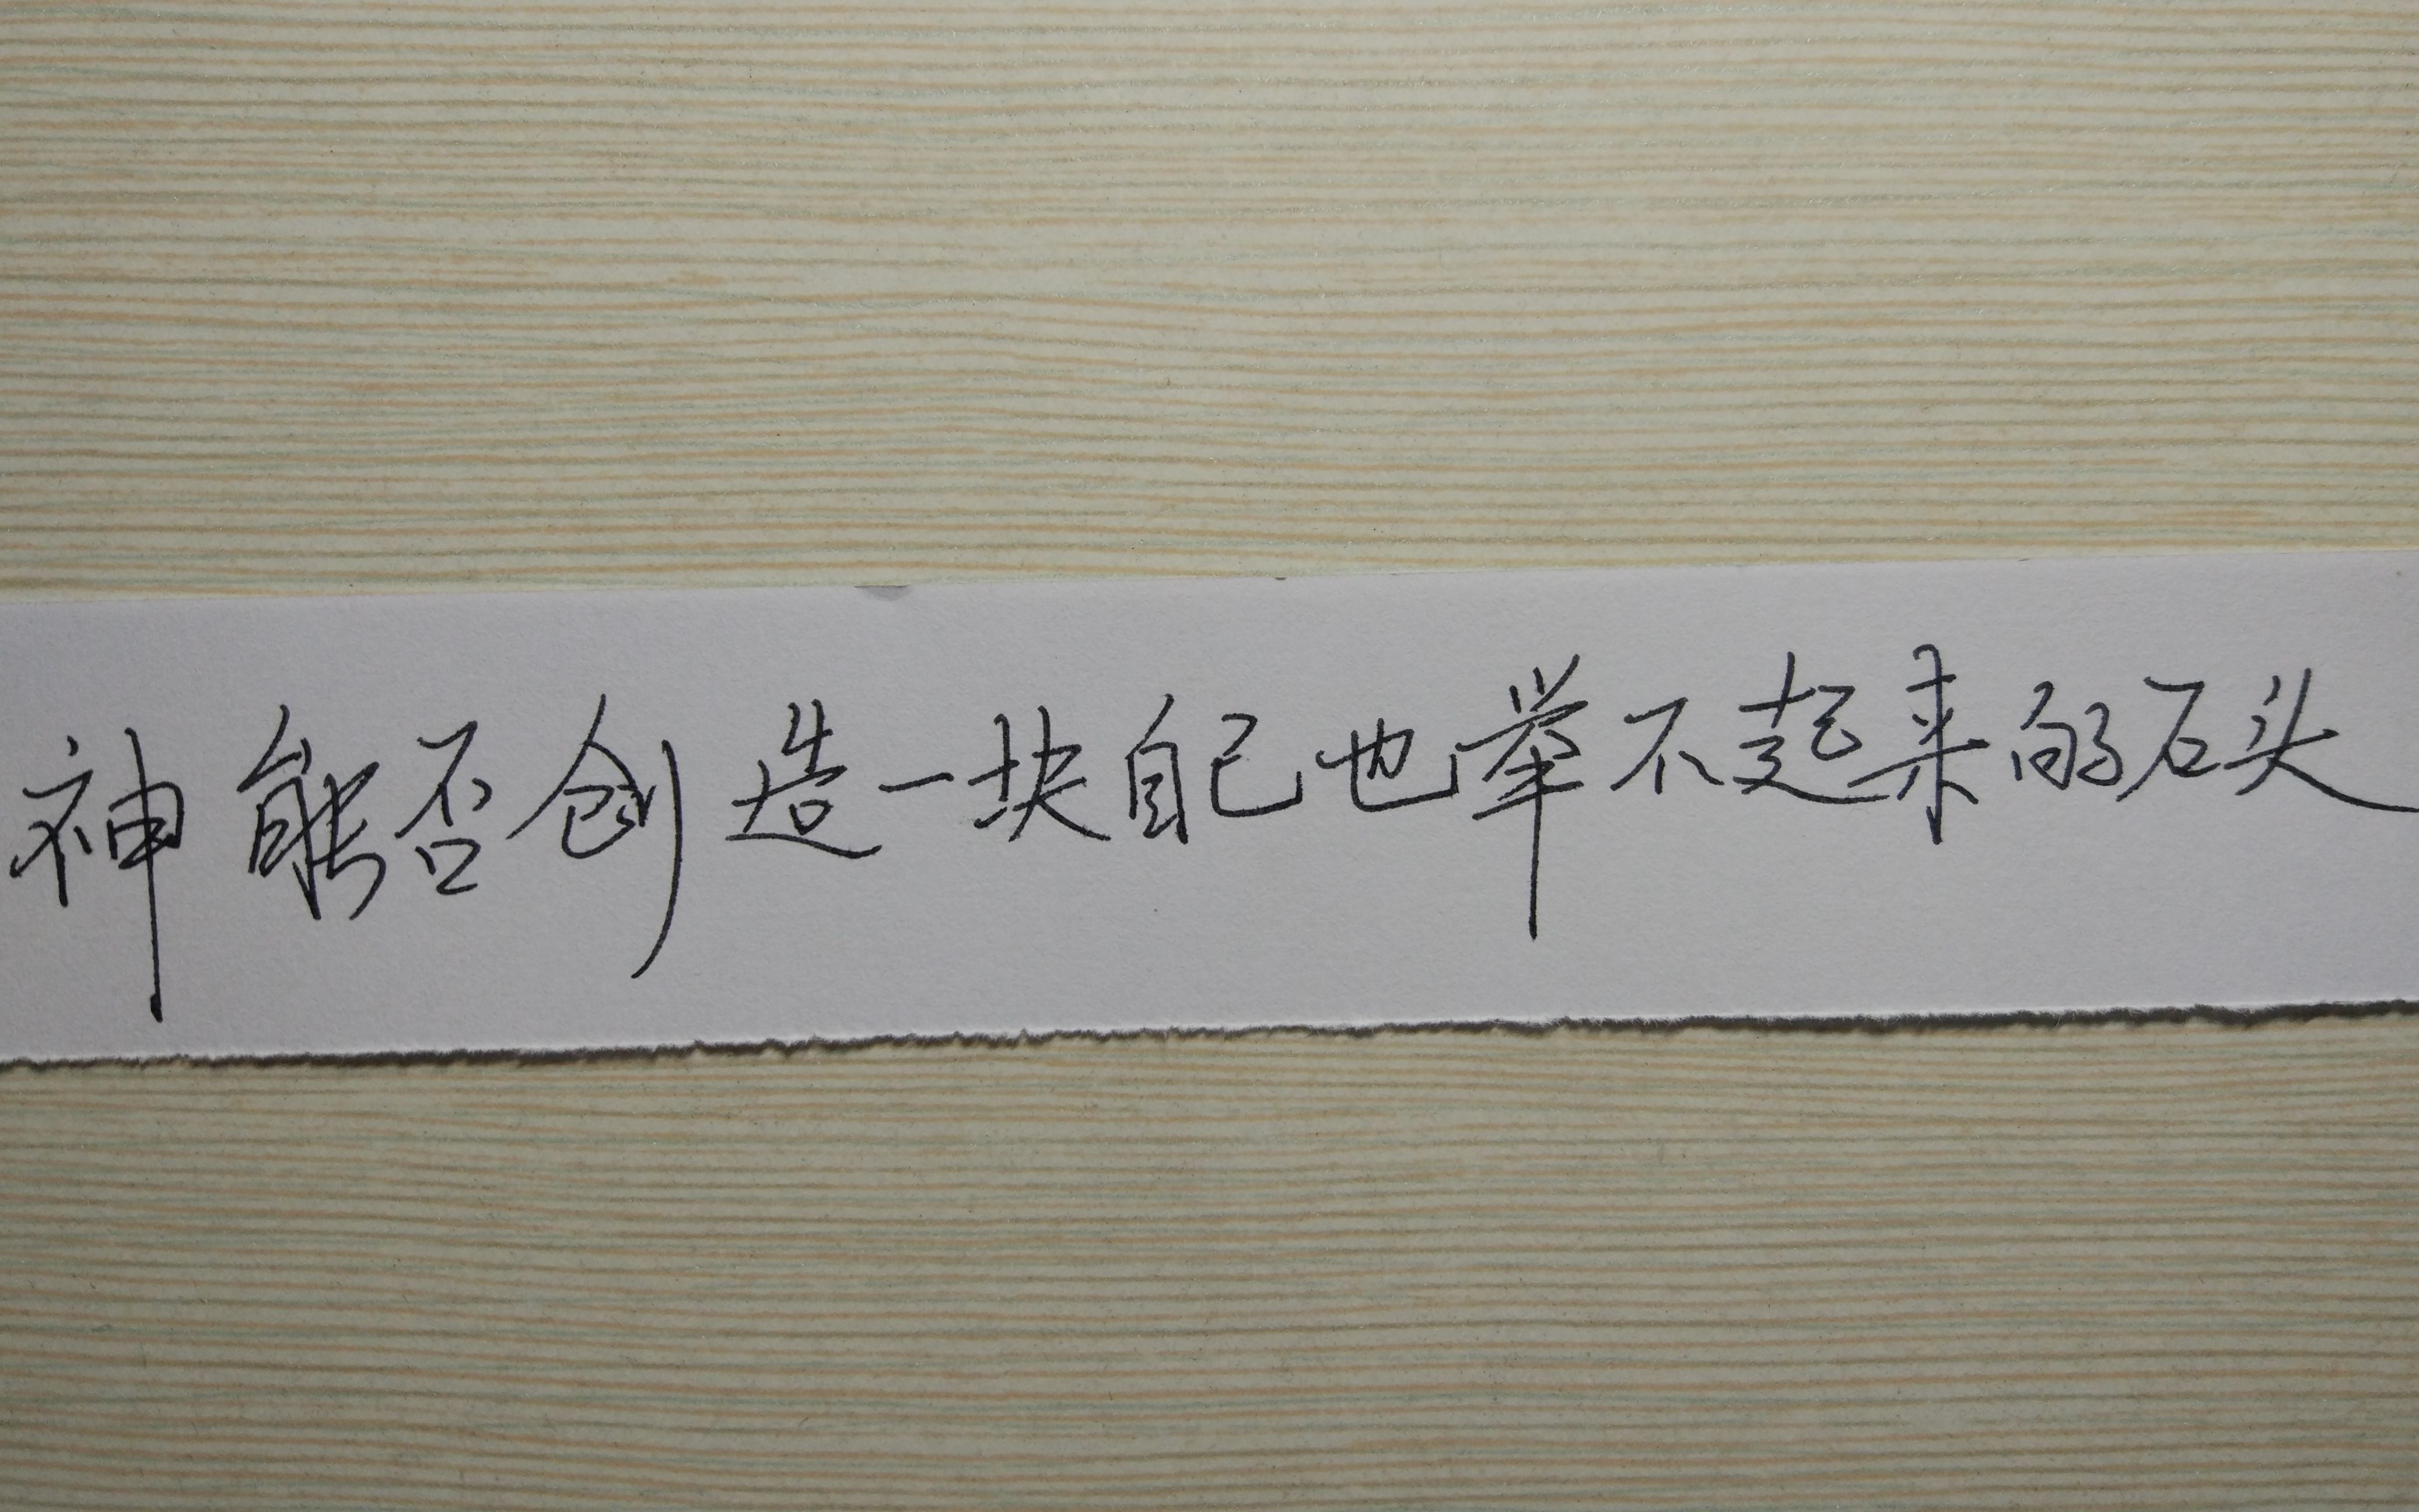 神能否创造一块自己也举不起来的石头